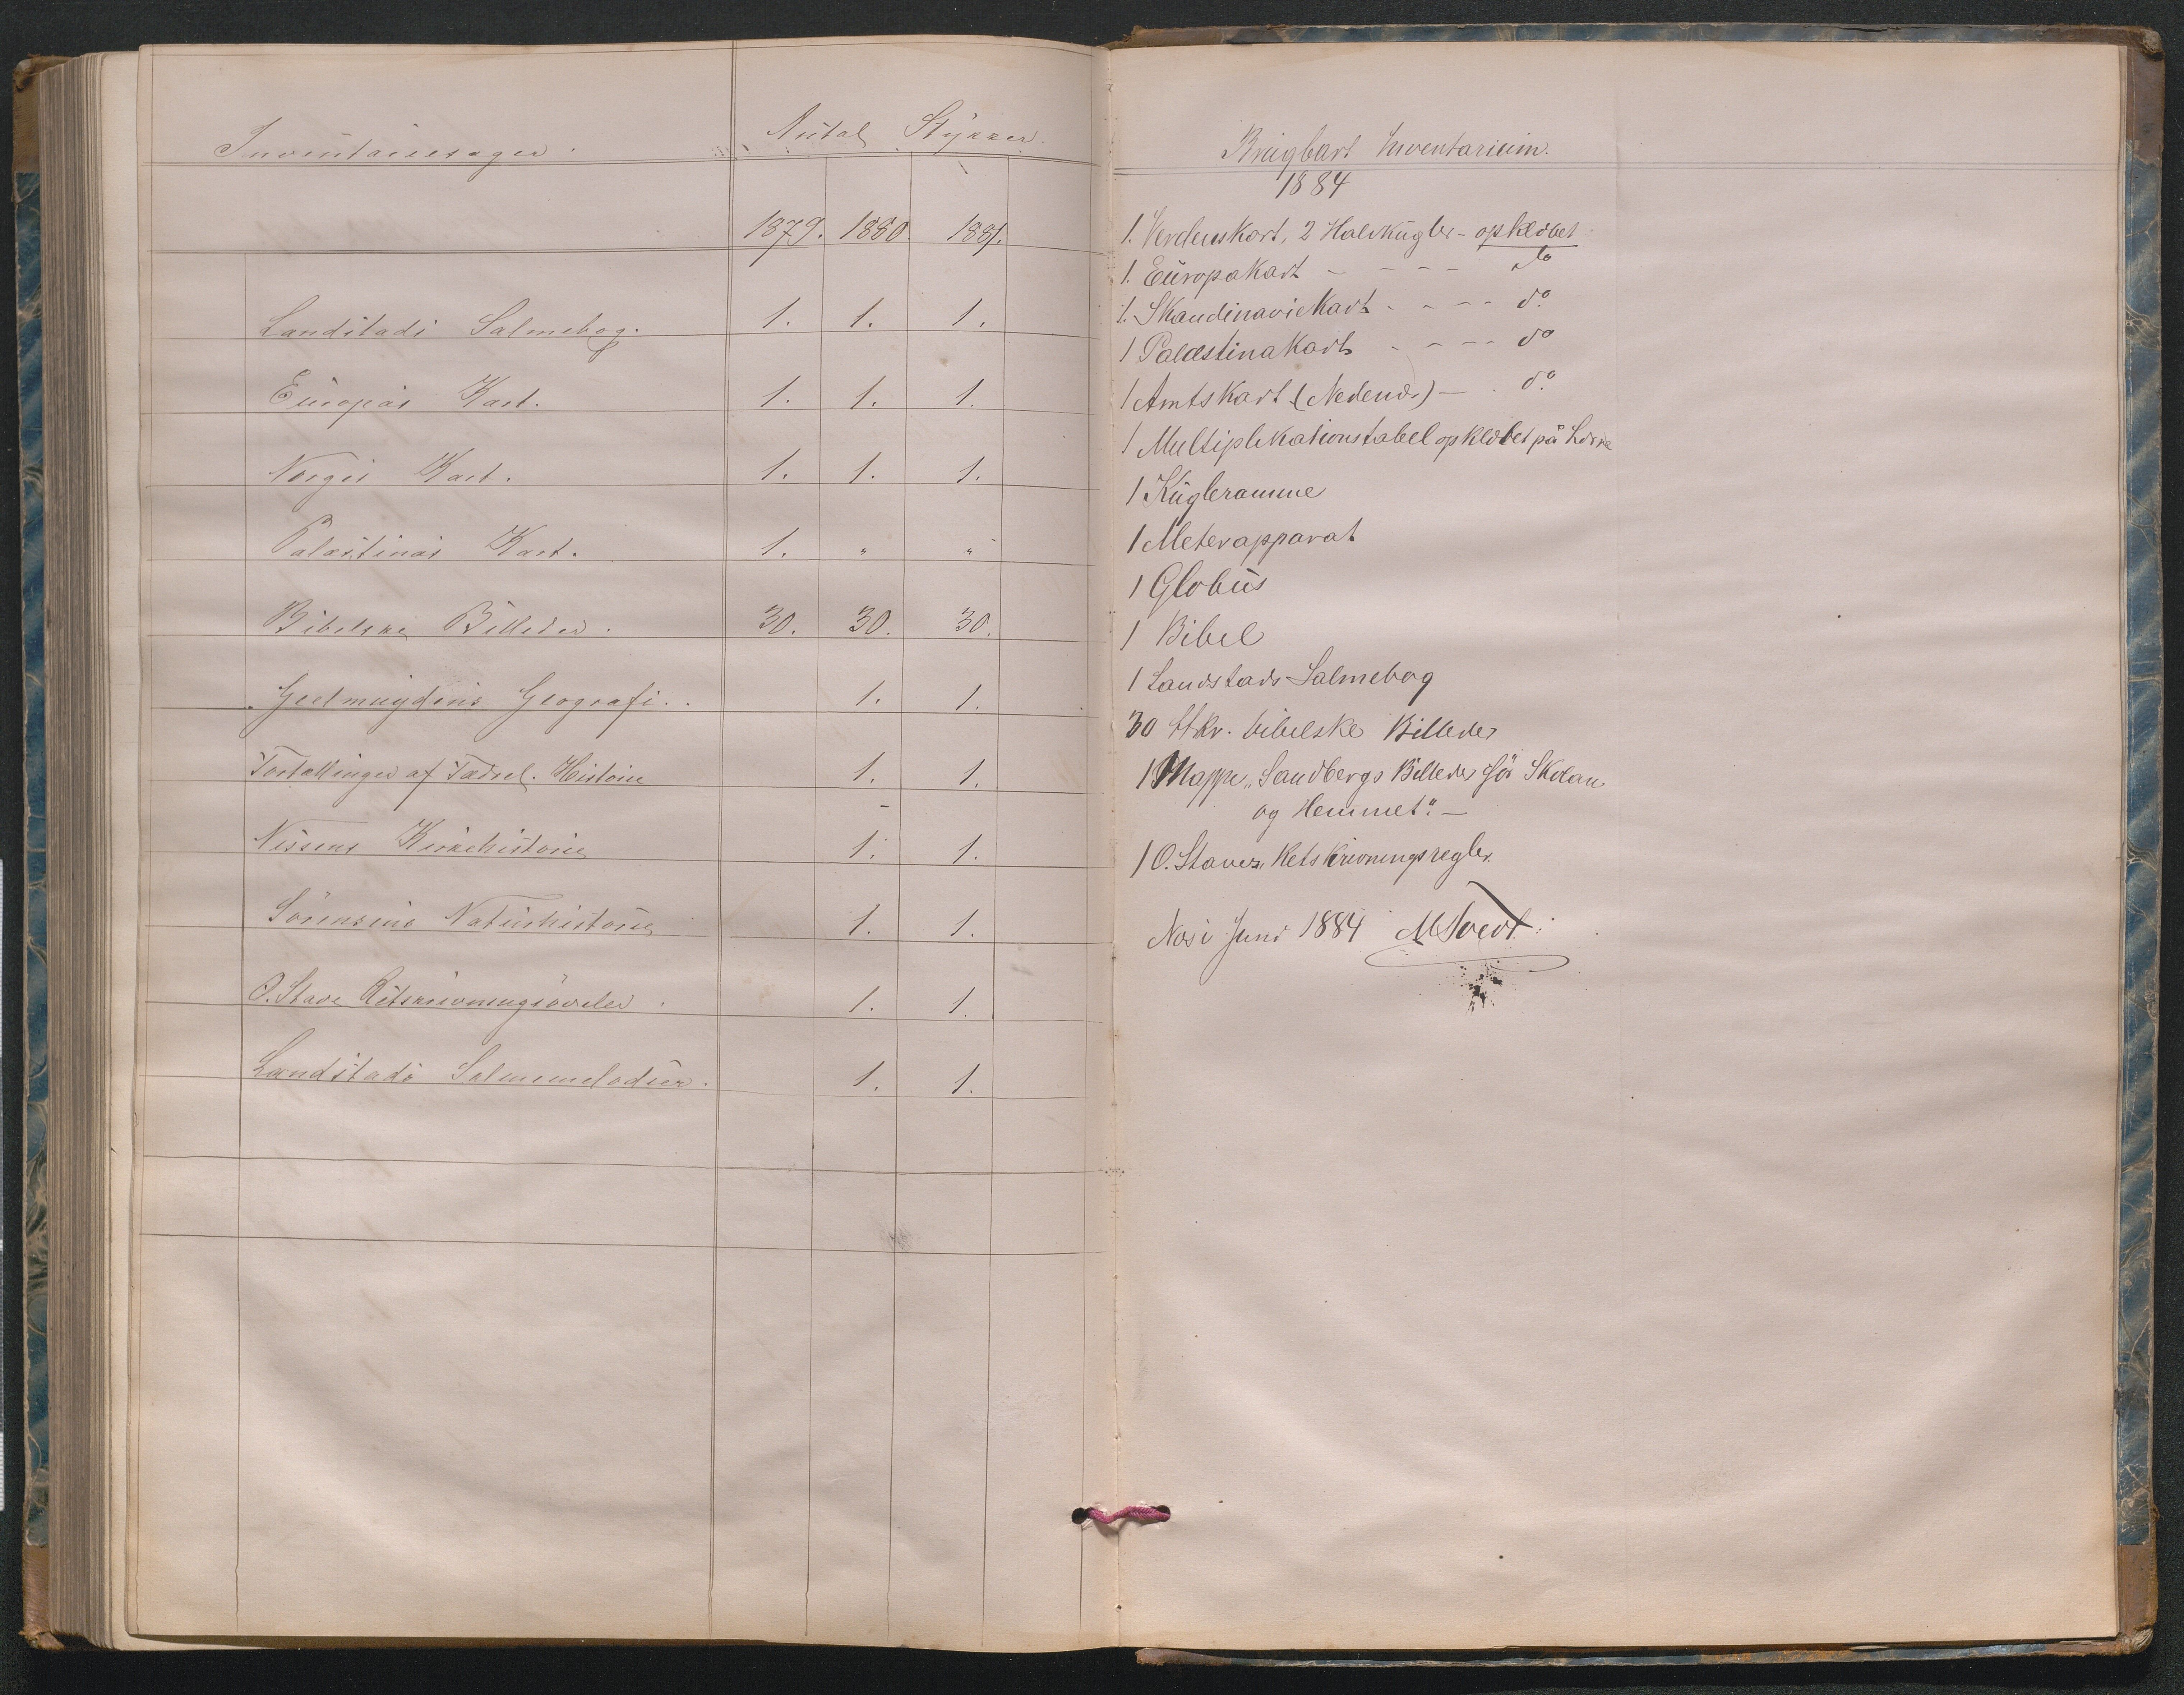 Inventariesager.
Antal Stykker.
1879. 1880. 1881.
Landstads Salmebog. 1. 1. 1.
Europas Kart. 1. 1. 1.
Norges Kart. 1. 1. 1.
Palæstinas Kart. 1. " "
Bibelske Billeder. 30. 30. 30.
Geelmuydens Geografi. 1. 1.
Fortællinger af Fædrel. Historie 1. 1.
Nissens Kirkehistorie 1. 1.
Sörensens Naturhistorie 1. 1.
O. Stave Retskrivningsövelser. 1. 1.
Landstads Salmemelodier. 1. 1.
Brugbart Inventarium.
1884
1. Verdenskort, 2 Halvkugler - opklæbet
1. Europakart - - - - do
1. Skandinaviekart - - - - do.
1 Palæstinakart - - - - do
1 Amtskart (Nedenæs) — . do.
1 Multiplikationstabel opklæbet på
1 Kugleramme
1 Meterapparat
1 Globus
1 Bibel
1 Landstads Salmebog
30 Stkr. bibelske Billeder
1 Mappe „Sandbergs Billeder för Skolan
og Hemmet". —
1 O. Staves Retskrivningsregler.
Næs i Juni 1884